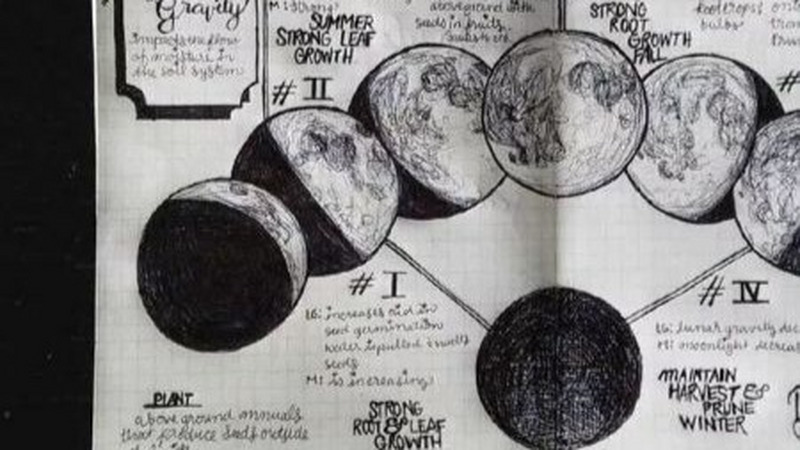 Gravity
impacts the flow
of moisture in
the soil system
M: strong
SUMMER
STRONG LEAF
GROWTH
# II
above ground with
seeds in fruits
STRONG
ROOT
GROWTH
FALL
bulbs
#
# I
LG: increases aid in
seed germination
water is pulled & swells
seeds
M: is increasing
STRONG
ROOT & LEAF
GROWTH
# IV
LG: lunar gravity dec
M: moonlight decreas
MAINTAIN
HARVEST &
PRUNE
WINTER
PLANT
above ground annuals
that produce seeds outside